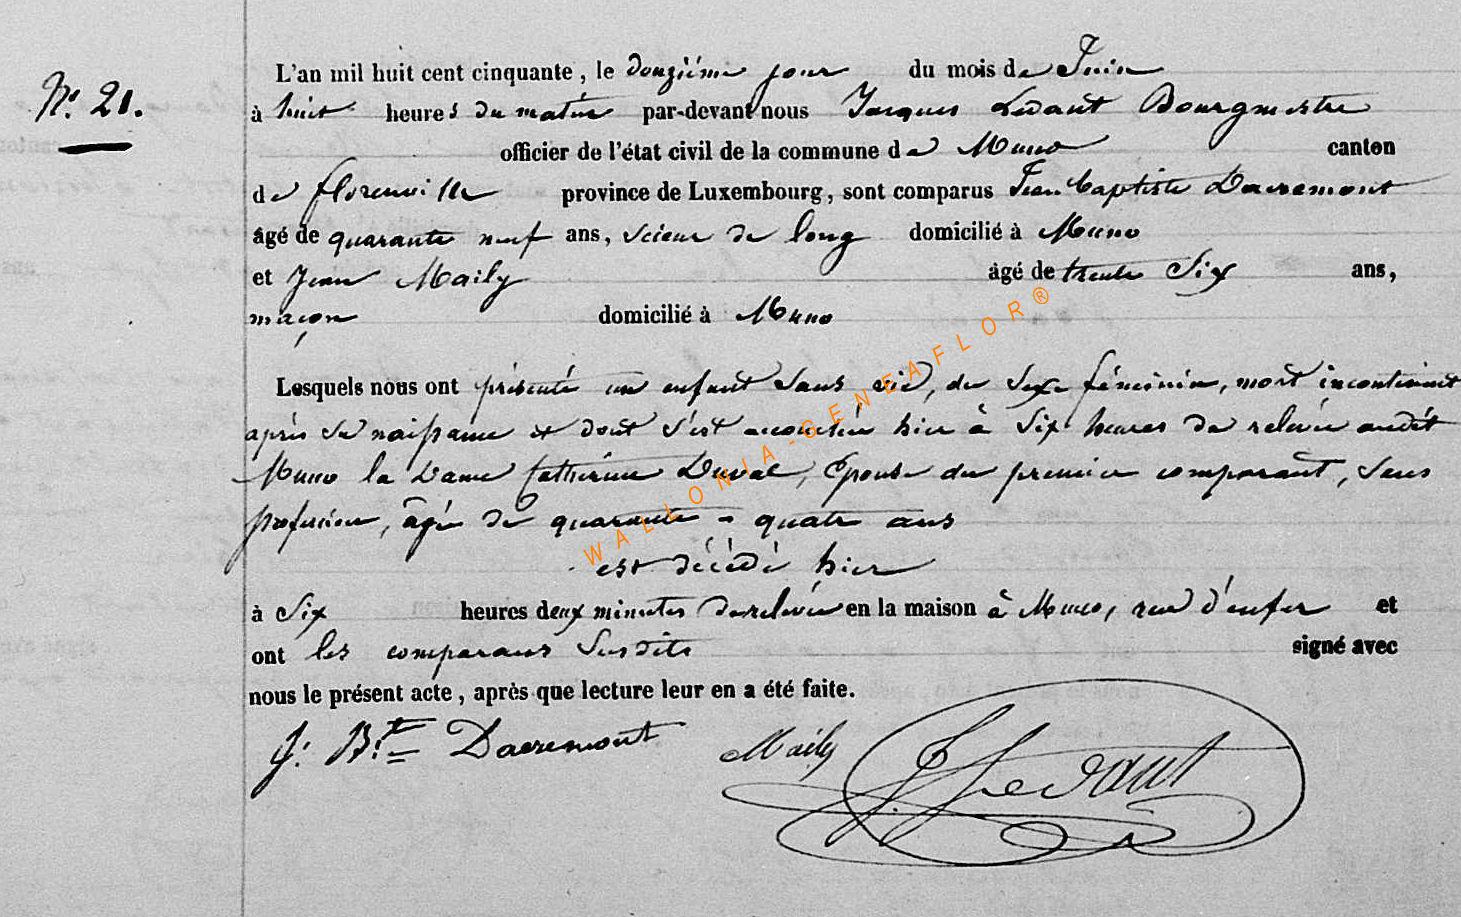 N.° 21.
L'an mil huit cent cinquante, le douzième jour du mois de Juin
à huit heures du matin par-devant nous Jacques Ledant Bourgmestre
officier de l'état civil de la commune de Muno canton
de florenville province de Luxembourg, sont comparus Jean baptiste Dacremont
âgé de quarante neuf ans, scieur de long domicilié à Muno
et Jean Maily âgé de trente Six ans,
maçon domicilié à Muno
Lesquels nous ont présenté un enfant Sans vie, du Sexe féminin, mort incontinent
après Sa naissance et dont s'est accouchée hier à Six heures de relevée audit
Muno la Dame Catherine Duval, Epouse du premier comparant, Sans
profession, âgée de quarante-quatre ans
est décédé hier
à Six heures deux minutes de relevée en la maison à Muno, rue d'enfer et
ont les comparans Susdits signé avec
nous le présent acte, après que lecture leur en a été faite.
J: B.te Dacremont Maily J Ledant
WALLONIA-GENEAFLOR®